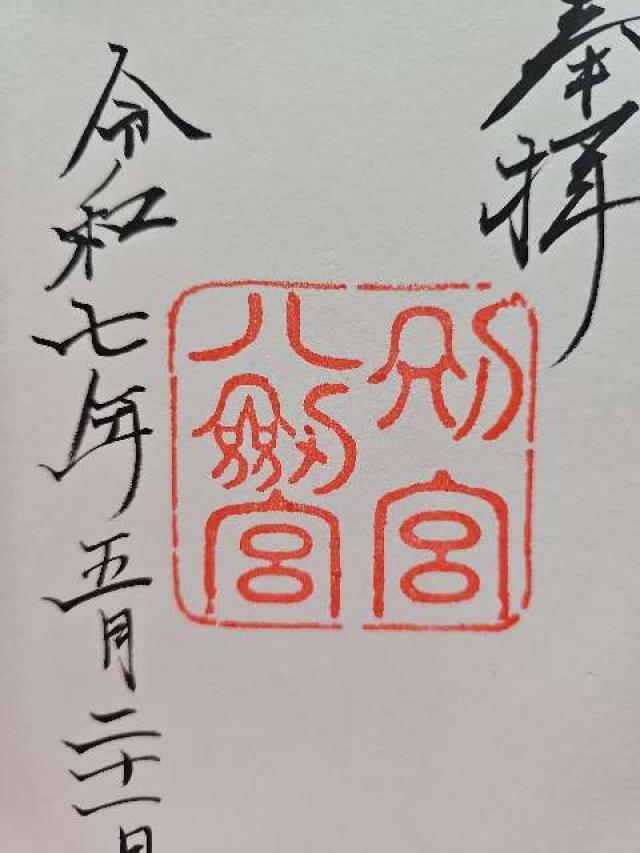 奉拝
別宮
八剱宮
令和七年五月二十一日